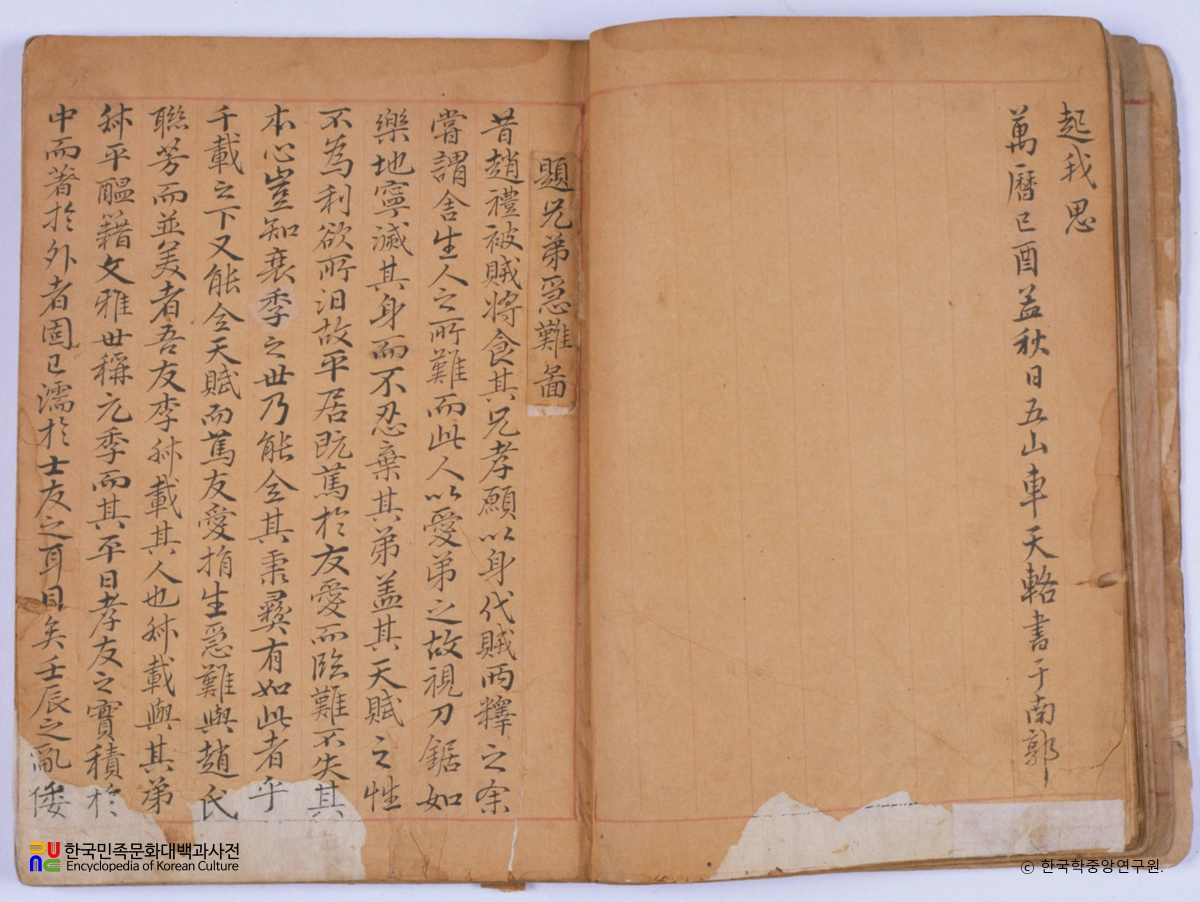 起我思
萬曆己酉孟秋日五山車天輅書于南郭
題兄弟急難啚
昔趙禮被賊將食其兄孝願以身代賊兩釋之余
嘗謂舍生人之所難而此人以愛弟之故視刀鋸如
樂地寧滅其身而不忍棄其弟盖其天賦之性
不為利欲所汨故平居既篤於友愛而臨難不失其
本心豈知衰季之世乃能全其秉彛有如此者乎
千載之下又能全天賦而篤友愛捐生急難與趙氏
聯芳而並美者吾友李叔載其人也叔載與其弟
叔平醞籍文雅世稱元季而其平日孝友之實積於
中而著於外者固已濡於士友之耳目矣壬辰之亂倭
한국민족문화대백과사전
Encyclopedia of Korean Culture
ⓒ 한국학중앙연구원.